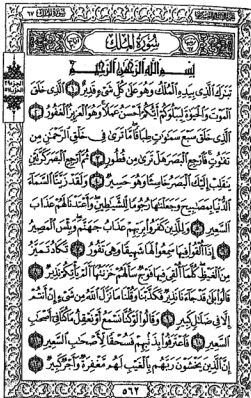 سُورَةُ المُلْكِ
بِسْمِ اللَّهِ الرَّحْمَٰنِ الرَّحِيمِ
تَبَٰرَكَ الَّذِي بِيَدِهِ الْمُلْكُ وَهُوَ عَلَىٰ كُلِّ شَيْءٍ قَدِيرٌ ١ الَّذِي خَلَقَ
الْمَوْتَ وَالْحَيَوٰةَ لِيَبْلُوَكُمْ أَيُّكُمْ أَحْسَنُ عَمَلًا وَهُوَ الْعَزِيزُ الْغَفُورُ ٢
الَّذِي خَلَقَ سَبْعَ سَمَٰوَٰتٍ طِبَاقًا مَّا تَرَىٰ فِي خَلْقِ الرَّحْمَٰنِ مِن
تَفَٰوُتٍ فَارْجِعِ الْبَصَرَ هَلْ تَرَىٰ مِن فُطُورٍ ٣ ثُمَّ ارْجِعِ الْبَصَرَ كَرَّتَيْنِ
يَنقَلِبْ إِلَيْكَ الْبَصَرُ خَاسِئًا وَهُوَ حَسِيرٌ ٤ وَلَقَدْ زَيَّنَّا السَّمَاءَ
الدُّنْيَا بِمَصَٰبِيحَ وَجَعَلْنَٰهَا رُجُومًا لِّلشَّيَٰطِينِ وَأَعْتَدْنَا لَهُمْ عَذَابَ
السَّعِيرِ ٥ وَلِلَّذِينَ كَفَرُوا بِرَبِّهِمْ عَذَابُ جَهَنَّمَ وَبِئْسَ الْمَصِيرُ
٦ إِذَا أُلْقُوا فِيهَا سَمِعُوا لَهَا شَهِيقًا وَهِيَ تَفُورُ ٧ تَكَادُ تَمَيَّزُ
مِنَ الْغَيْظِ كُلَّمَا أُلْقِيَ فِيهَا فَوْجٌ سَأَلَهُمْ خَزَنَتُهَا أَلَمْ يَأْتِكُمْ نَذِيرٌ ٨
قَالُوا بَلَىٰ قَدْ جَاءَنَا نَذِيرٌ فَكَذَّبْنَا وَقُلْنَا مَا نَزَّلَ اللَّهُ مِن شَيْءٍ إِنْ أَنتُمْ
إِلَّا فِي ضَلَٰلٍ كَبِيرٍ ٩ وَقَالُوا لَوْ كُنَّا نَسْمَعُ أَوْ نَعْقِلُ مَا كُنَّا فِي أَصْحَٰبِ
السَّعِيرِ ١٠ فَاعْتَرَفُوا بِذَنبِهِمْ فَسُحْقًا لِّأَصْحَٰبِ السَّعِيرِ ١١
إِنَّ الَّذِينَ يَخْشَوْنَ رَبَّهُم بِالْغَيْبِ لَهُم مَّغْفِرَةٌ وَأَجْرٌ كَبِيرٌ ١٢
٥٦٢